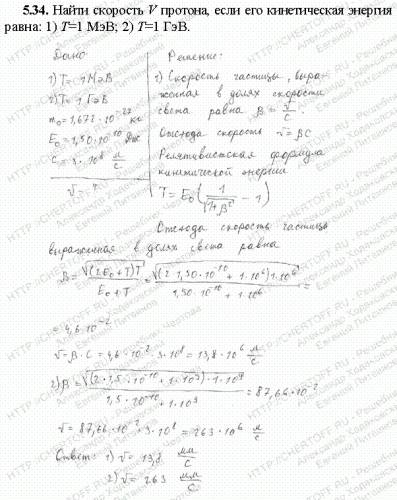 5.34. Найти скорость V протона, если его кинетическая энергия
равна: 1) T=1 МэВ; 2) T=1 ГэВ.
Дано
1) T = 1 МэВ
2) T = 1 ГэВ
m₀ = 1,672 · 10⁻²⁷ кг
E₀ = 1,50 · 10⁻¹⁰ Дж
C = 3 · 10⁸ м/с
v - ?
Решение:
1) Скорость частицы, выра-
женная в долях скорости
света равна β = v/c.
Отсюда скорость v = βC
Релятивистская формула
кинетической энергии
T = E₀ (1/√(1+β²) - 1)
Отсюда скорость частицы
выраженная в долях света равна
β = √((2E₀+T)T)/(E₀+T) = √((2·1,50·10⁻¹⁰ + 1·10⁶)·1·10⁶)/(1,50·10⁻¹⁰ + 1·10⁶) =
= 4,6 · 10⁻²
v = β·C = 4,6 · 10⁻² · 3 · 10⁸ = 13,8 · 10⁶ м/с
2) β = √((2·1,5·10⁻¹⁰ + 1·10⁹)·1·10⁹)/(1,5·10⁻¹⁰ + 1·10⁹) = 87,66 · 10⁻²
v = 87,66 · 10⁻² · 3 · 10⁸ = 263 · 10⁶ м/с
Ответ: 1) v = 13,8 Мм/с
2) v = 263 Мм/с
HTTP://CHERTOFF.RU